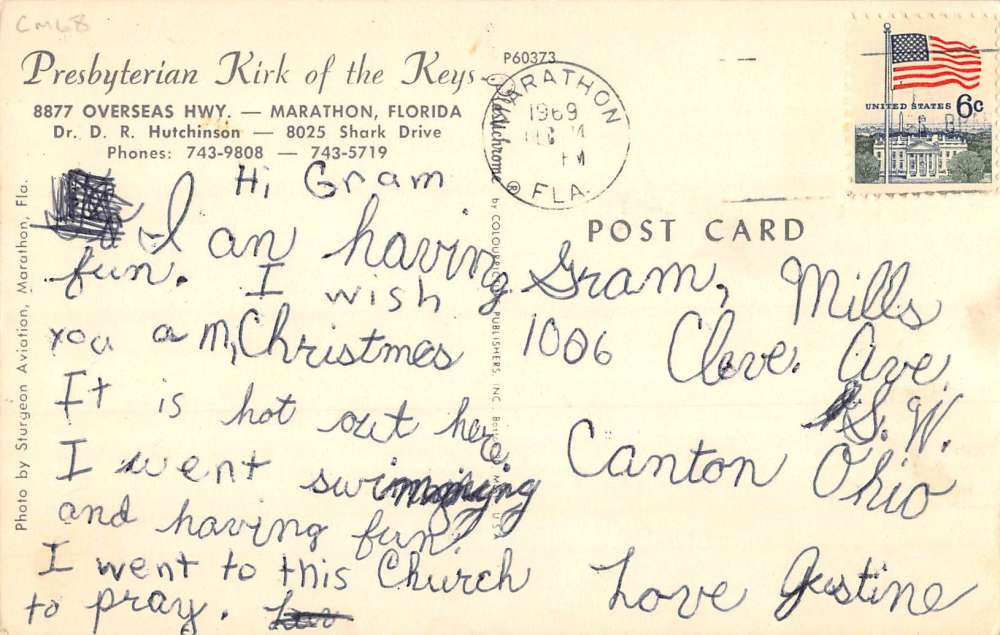 CM68
Presbyterian Kirk of the Keys
8877 OVERSEAS HWY. — MARATHON, FLORIDA
Dr. D. R. Hutchinson — 8025 Shark Drive
Phones: 743-9808 — 743-5719
P60373
Plastichrome ® by COLOURPICTURE PUBLISHERS, INC.
MARATHON
1969
PM
FLA.
UNITED STATES 6c
POST CARD
Photo by Sturgeon Aviation, Marathon, Fla.
Hi Gram
I an having
fun. I wish
you a M, Christmes
It is hot out here.
I went swimming
and having fun.
I went to this Church
to pray.
Gram, Mills
1006 Cleve. Ave.
S. W.
Canton Ohio
Love Gustine